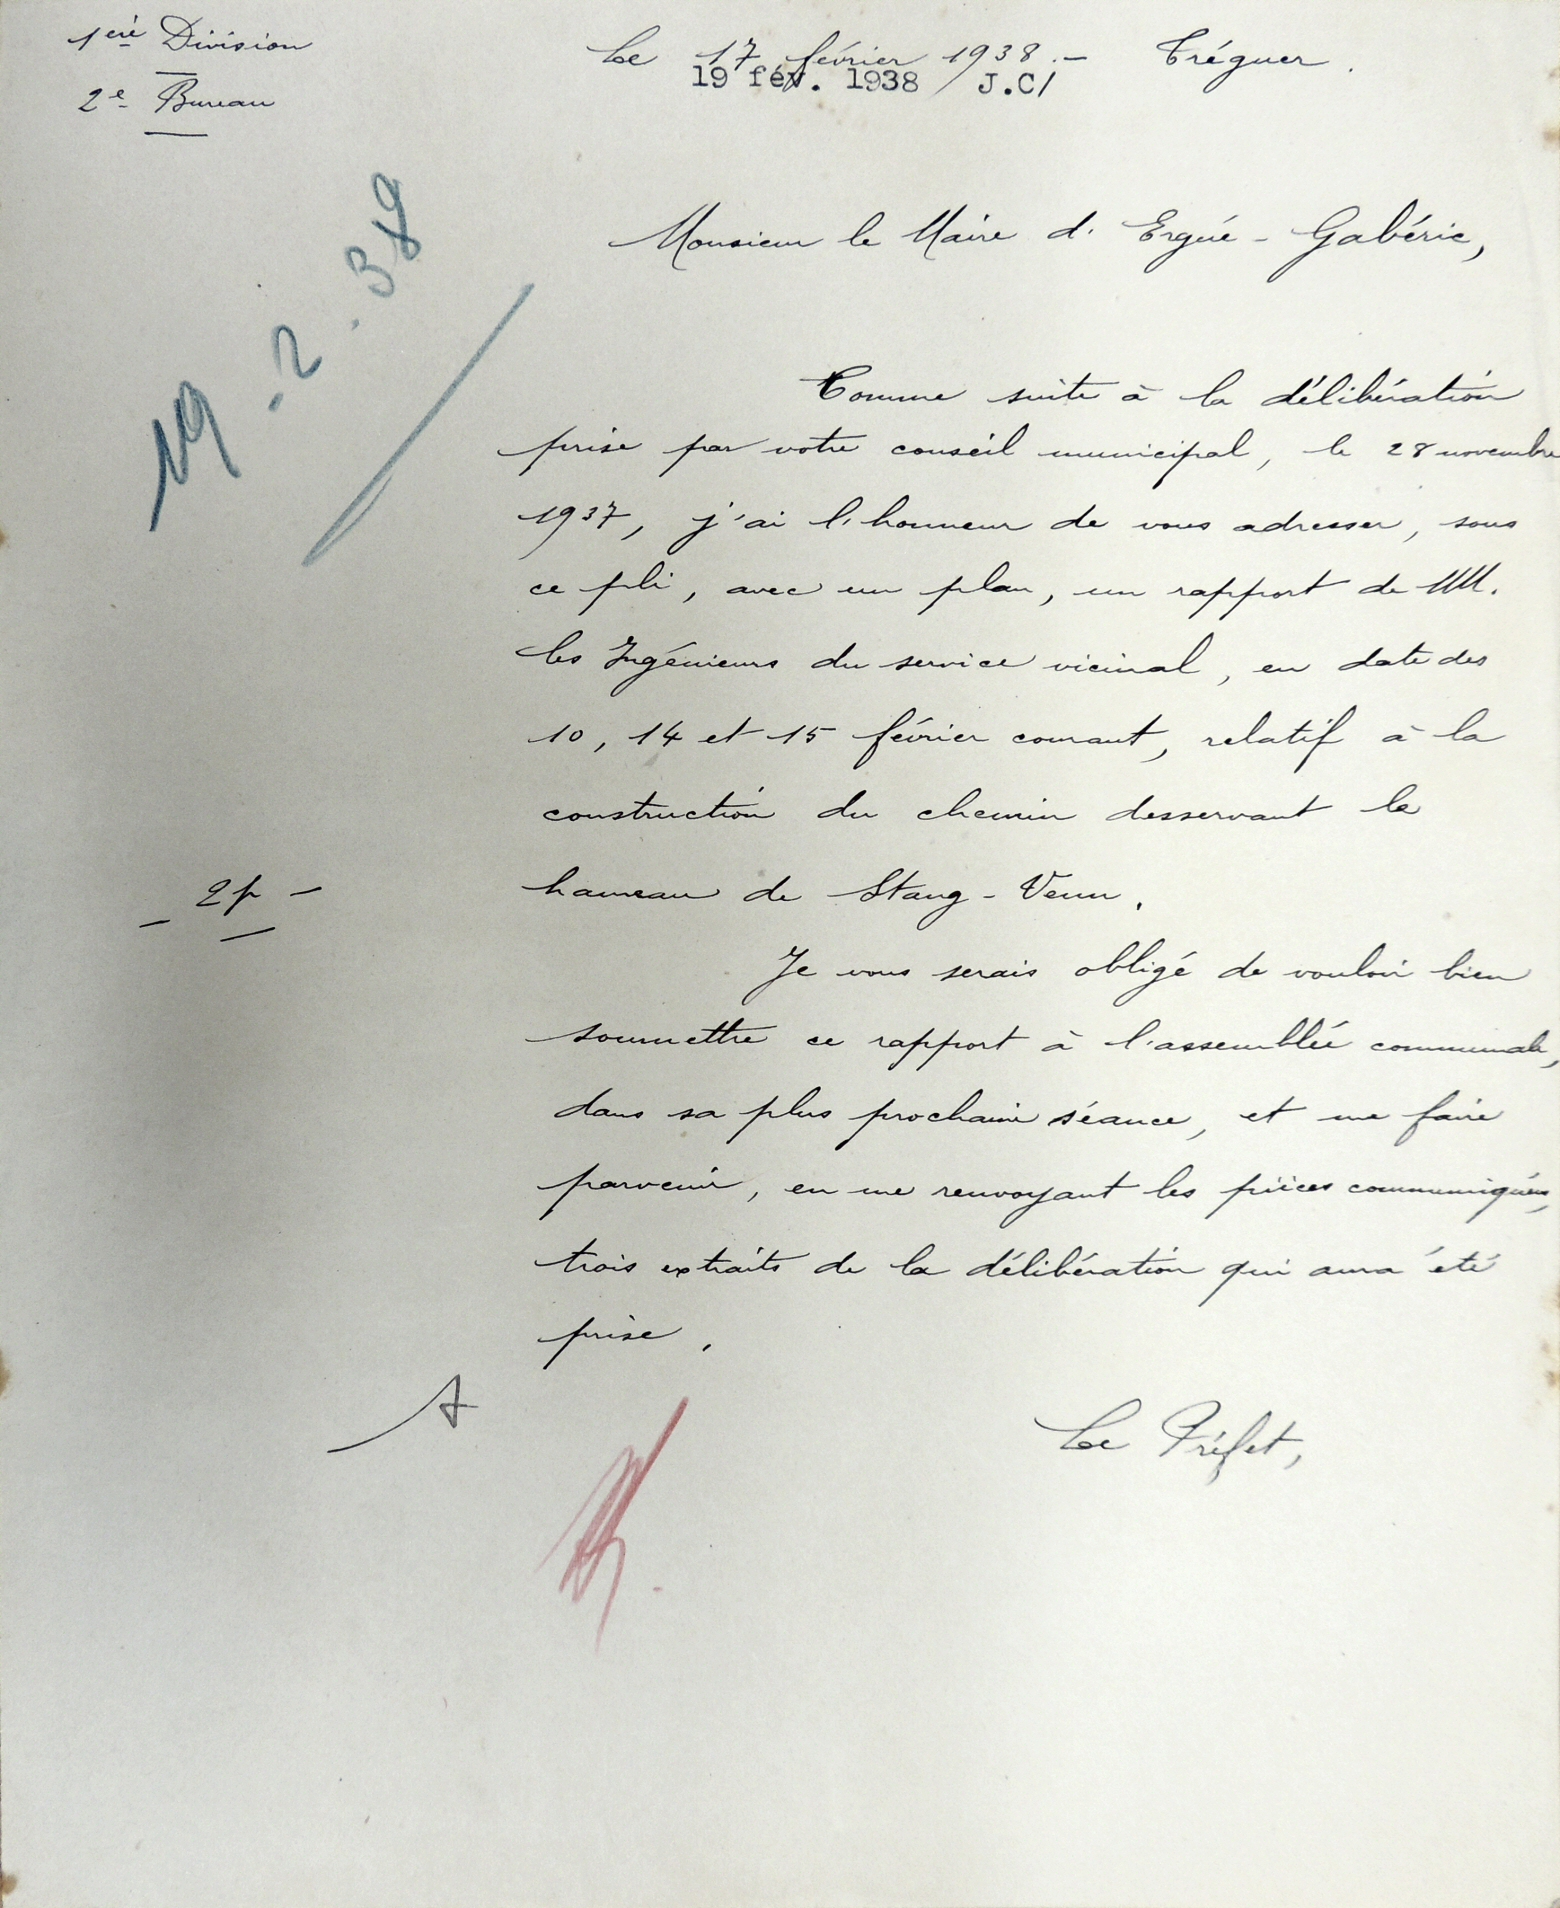 1ère Division
2e Bureau
Le 17 février 1938.- Tréguer.
19 fév. 1938 J.C/
19-2-38
Monsieur le Maire d'Ergué-Gabéric,
Comme suite à la délibération
prise par votre conseil municipal, le 28 novembre
1937, j'ai l'honneur de vous adresser, sous
ce pli, avec un plan, un rapport de MM.
les Ingénieurs du service vicinal, en date des
10, 14 et 15 février courant, relatif à la
construction du chemin desservant le
hameau de Stang-Venn.
- 2p -
Je vous serais obligé de vouloir bien
soumettre ce rapport à l'assemblée communale,
dans sa plus prochaine séance, et me faire
parvenir, en me renvoyant les pièces communiquées,
trois extraits de la délibération qui aura été
prise.
Le Préfet,